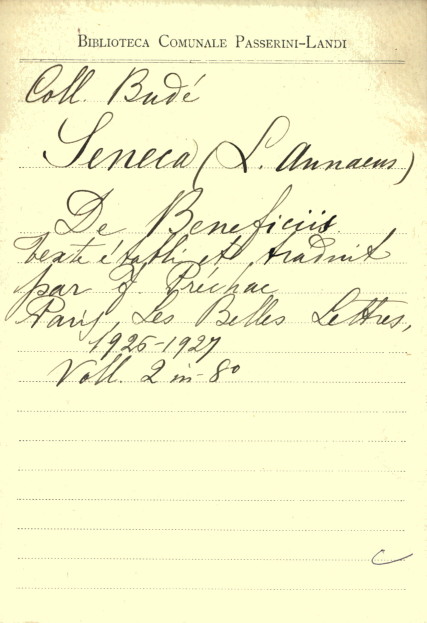 BIBLIOTECA COMUNALE PASSERINI-LANDI
Coll. Budé
Seneca (L. Annaeus)
De Beneficiis.
texte établi et traduit
par F. Préchac
Paris, Les Belles Lettres,
1926-1927
Voll. 2 in-8º
C